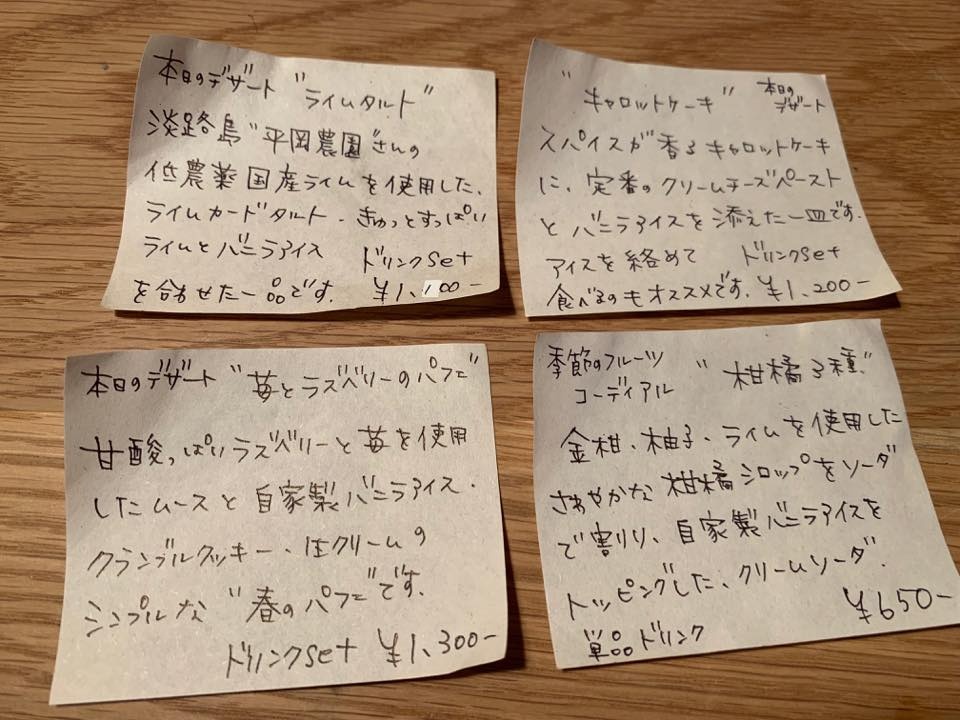 本日のデザート "ライムタルト"
淡路島"平岡農園"さんの
低農薬国産ライムを使用した、
ライムカードタルト。きゅっとすっぱい
ライムとバニラアイス ドリンクset
を合わせた一品です。 ¥1,100-
"キャロットケーキ" 本日の
デザート
スパイスが香るキャロットケーキ
に、定番のクリームチーズペースト
とバニラアイスを添えた一皿です。
アイスを絡めて ドリンクset
食べるのもオススメです。¥1,200-
本日のデザート "苺とラズベリーのパフェ"
甘酸っぱいラズベリーと苺を使用
したムースと自家製バニラアイス、
クランブルクッキー、生クリームの
シンプルな "春のパフェ"です。
ドリンクset ¥1,300-
季節のフルーツ
コーディアル "柑橘3種"
金柑、柚子、ライムを使用した
さわやかな柑橘シロップをソーダ
で割りり、自家製バニラアイスを
トッピングした、クリームソーダ。
¥650-
単品ドリンク